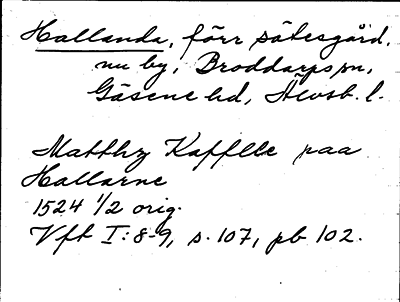 Hallanda, förr sätesgård,
nu by, Broddarps sn,
Gäsene hd, Älvsb. l.
Matthz Kafflle paa
Hallarne
1524 1/2 orig.
Vft I:8-9, s. 107, pb 102.